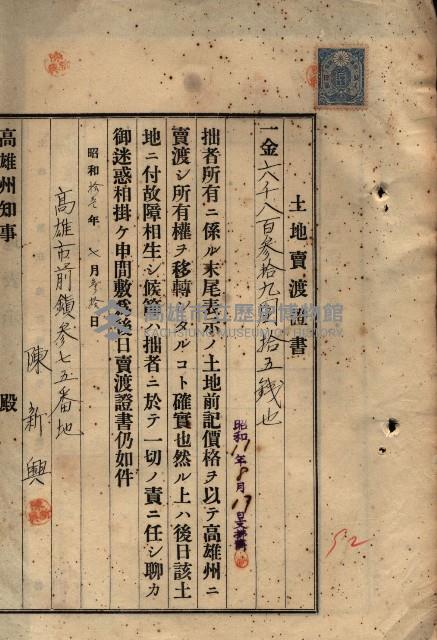 土地賣渡證書
一金六千八百參拾九圓拾五錢也
昭和11年8月17日支拂濟
拙者所有ニ係ル末尾表示ノ土地前記價格ヲ以テ高雄州ニ
賣渡シ所有權ヲ移轉シタルコト確實也然ル上ハ後日該土
地ニ付故障相生シ候節ハ拙者ニ於テ一切ノ責ニ任シ聊カ
御迷惑相掛ケ申間敷爲後日賣渡證書仍如件
昭和拾壹年七月參拾日
高雄市前鎮參七五番地
陳新興
高雄州知事 殿
52
高雄市立歷史博物館
KAOHSIUNG MUSEUM OF HISTORY